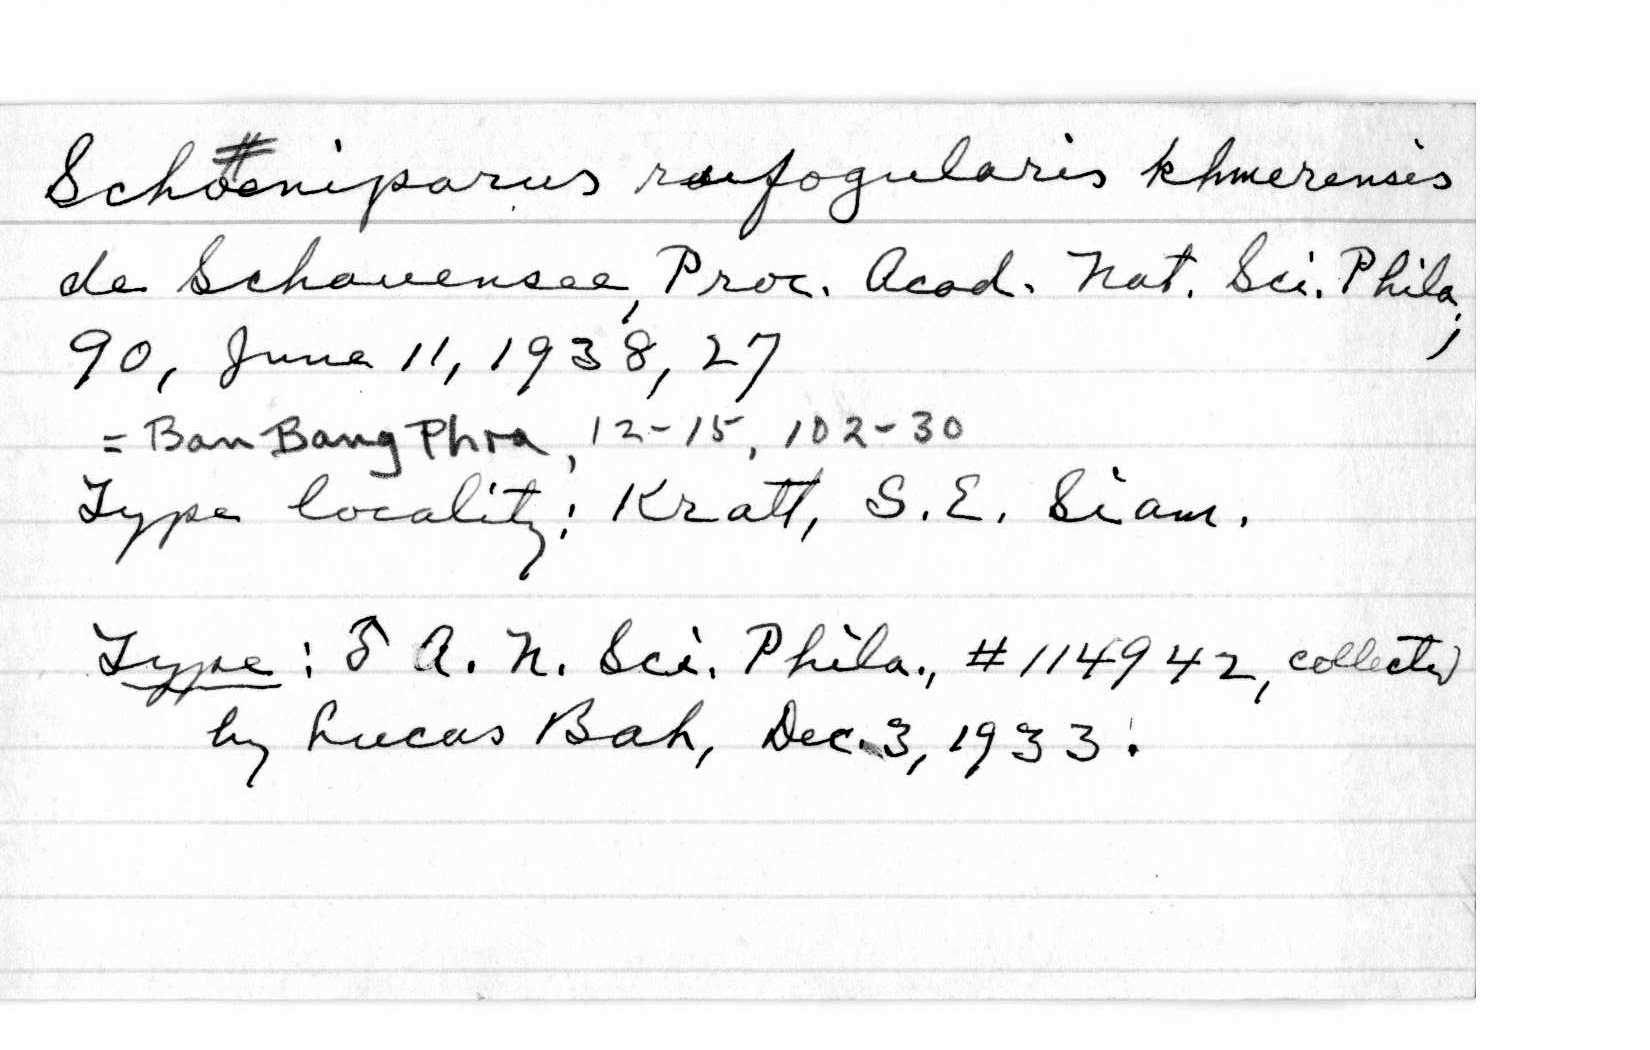 Schoeniparus rufogularis khmerensis
de Schauensee, Proc. Acad. Nat. Sci. Phila;
90, June 11, 1938, 27
= Ban Bang Phra, 12-15, 102-30
Type locality: Kratt, S.E. Siam.
Type: ♂ A. N. Sci. Phila., #114942, collected
by Lucas Bah, Dec. 3, 1933.